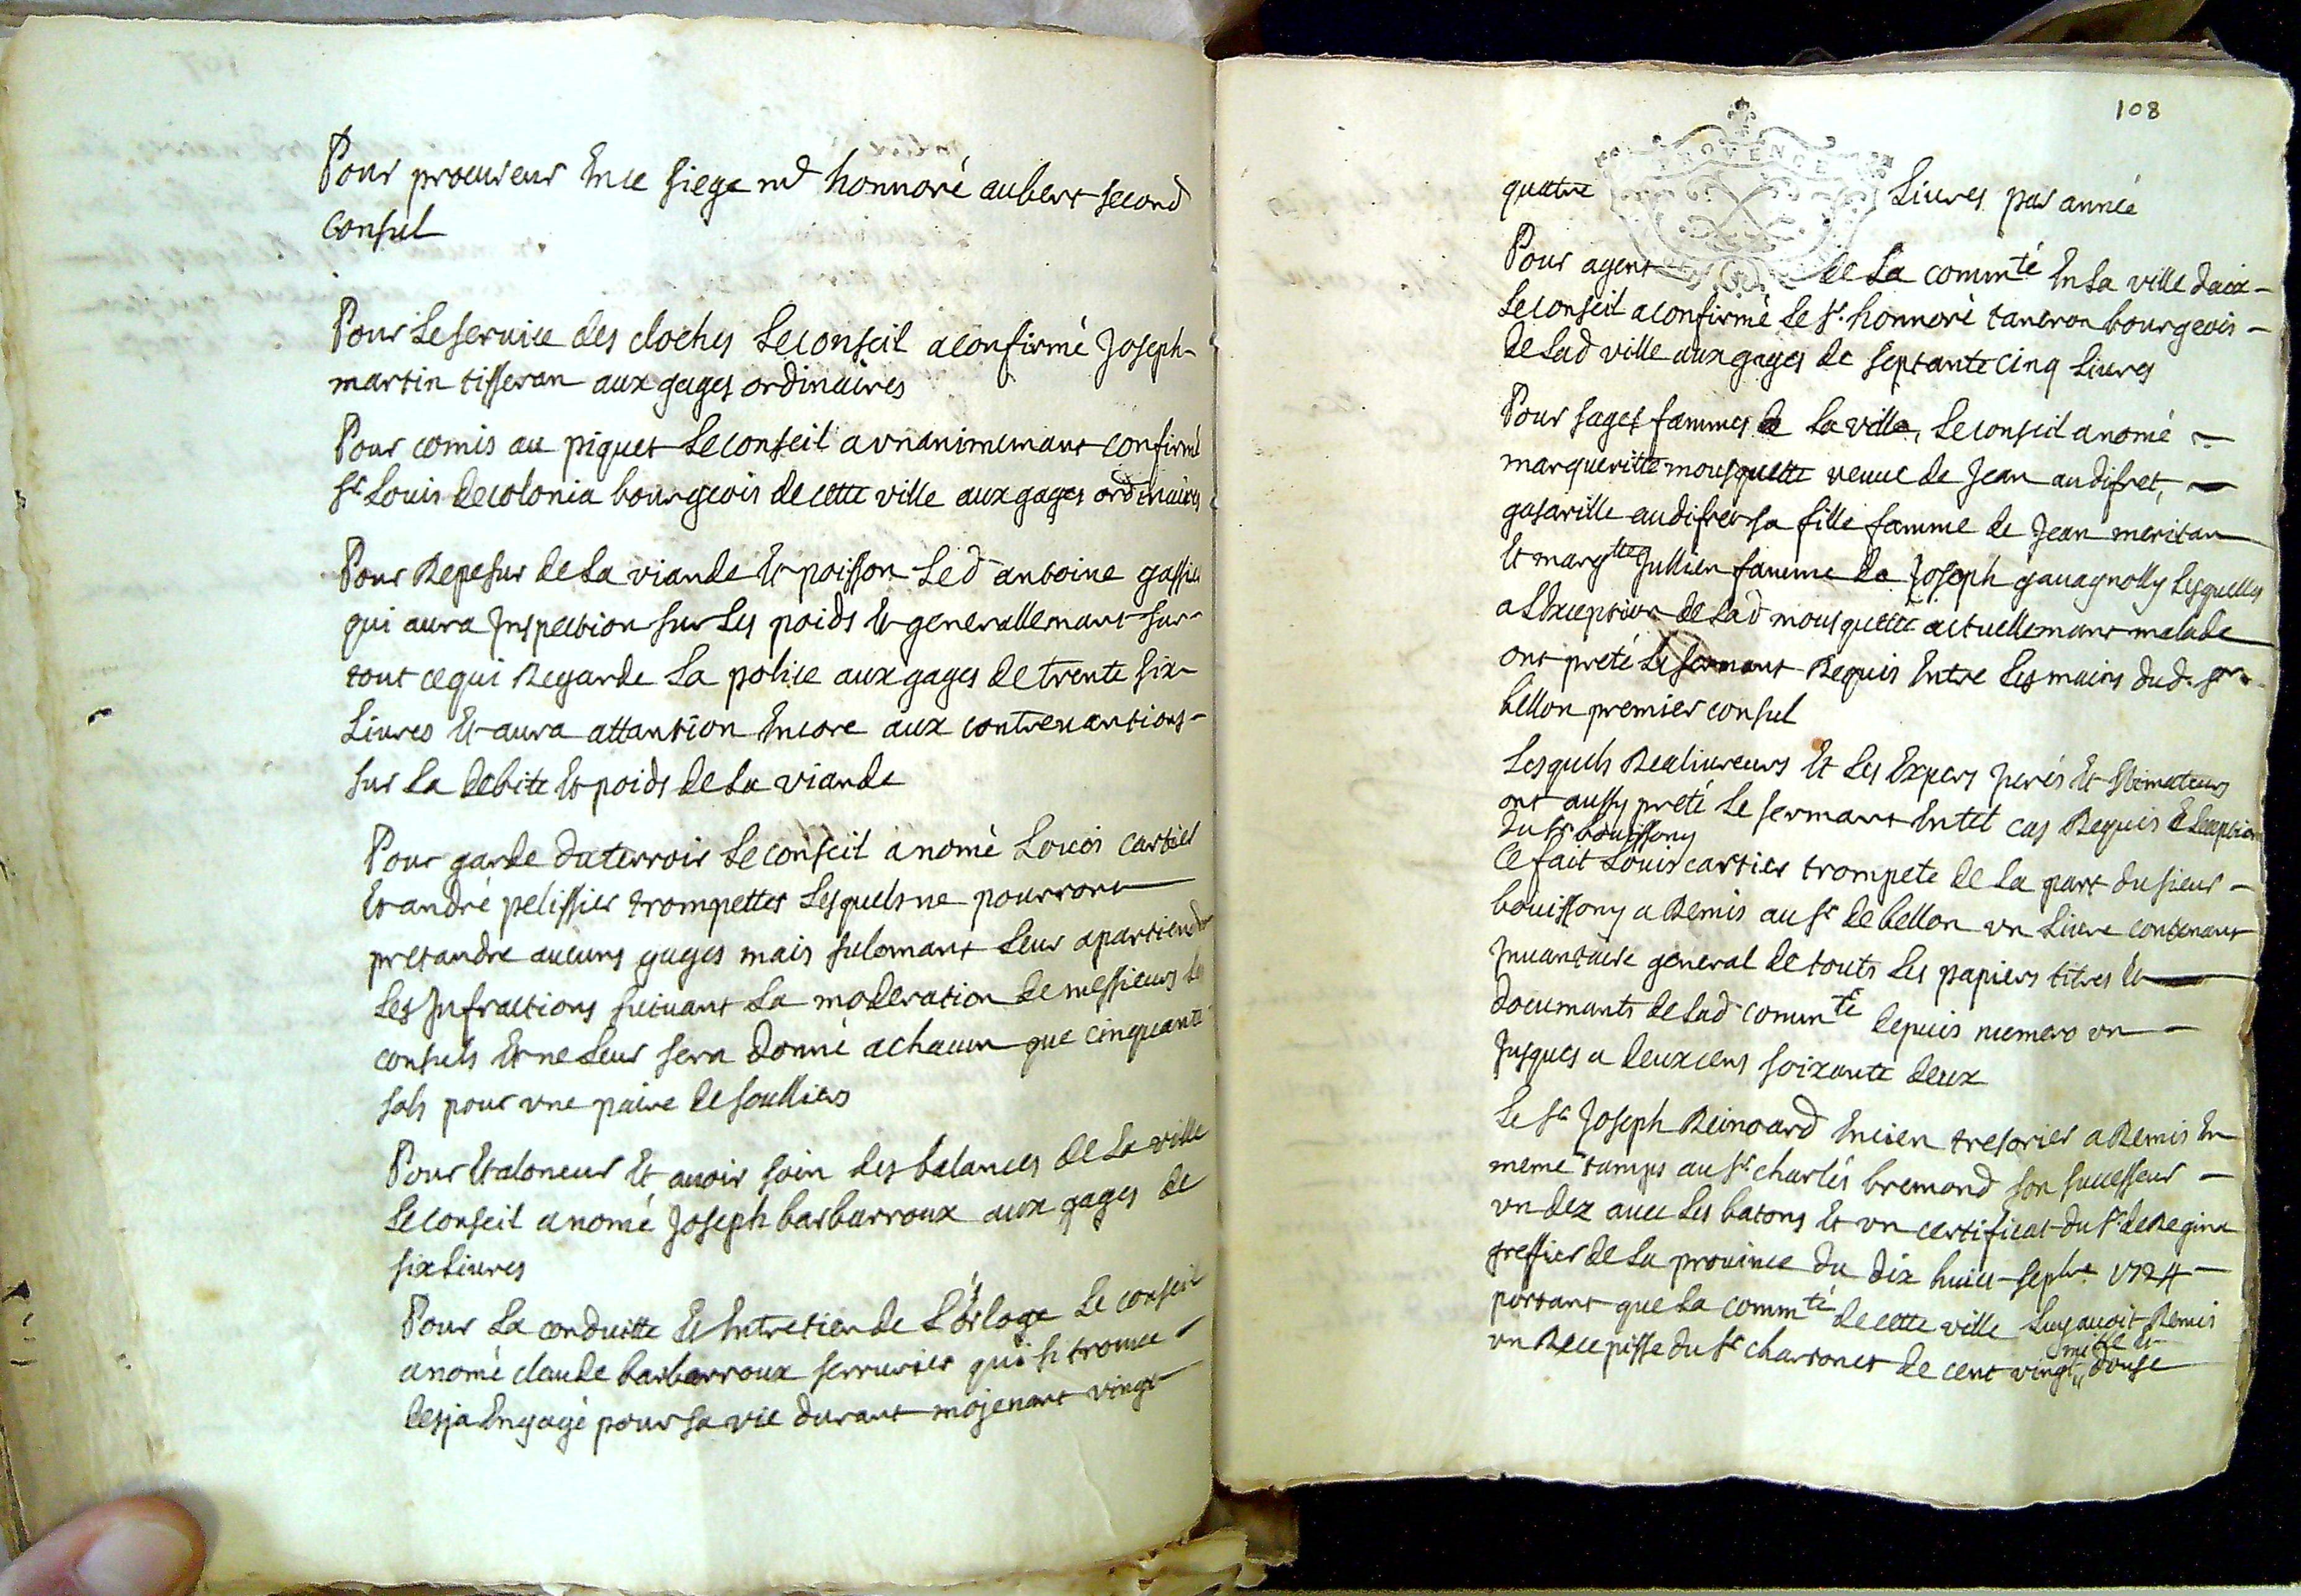 Pour procureur En ce siege md honnoré aubert second
consul
Pour Le service des cloches Le conseil a confirmé Joseph
martin tisseran aux gages ordinaires
Pour comis au piquet Le conseil a vnanimemant confirmé
Sr Louis de colonia bourgeois de cette ville aux gages ordinaires
Pour Repesur de La viande Et poisson Led antoine gassier
qui aura Inspection sur Les poids Et generallemant sur
tout ce qui Regarde La police aux gages de trente six
Livres Et aura attantion Encore aux contrevantions
sur La debite Et poids de La viande
Pour garde du terroir Le conseil a nomé Louis cartier
Et andré pelissier trompettes Lesquels ne pourront
pretandre aucuns gages mais sulemant Leur apartiendra
Les Infractions suivant La moderation de messieurs Les
consuls Et ne Leur sera donné a chacun que cinquante
sols pour vne paire de soulliers
Pour Etaloneur Et avoir soin des balances de La ville
Le conseil a nomé Joseph barbarroux aux gages de
six Livres
Pour La conduitte Et Entretien de L'orloge Le conseil
a nomé claude barbarroux serrurier qui se trouve
desja Engagé pour sa vie durant mojenant vingt
108
PROVENCE
quatre Livres par année
Pour agent de La commté En La ville daix
Le conseil a confirmé Le sr. honnoré tancron bourgeois
de Lad ville aux gages de septante cinq Livres
Pour sages fammes de La ville, Le conseil a nomé
margueritte mousquette veuve de Jean audifret,
gasarille audifret sa fille famme de Jean meritan
Et margtte Jullien famme de Joseph gavagnolly Lesquelles
a L'Exception de Lad mousquette actuellemant malade
ont preté Le sermant Requis Entre Les mains dud. sr
bellon premier consul
Lesquels Realivreurs Et Les Expers Jurés Et Estimateurs
ont aussy preté Le sermant En tel cas Requis a L'Exception
du sr bouissony
Ce fait Louis cartier trompete de La part du sieur
bouissony a Remis au sr de bellon vn Livre contenant
Invantaire general de touts Les papiers titres Et
documants de Lad commté depuis numero vn
Jusques a deux cens soixante deux
Le sr Joseph Reinoard Encien tresorier a Remis En
meme tamps au sr charles bremond son successeur
vn dez avec Les batons Et vn certificat du sr de Regina
greffier de La province du dix huict sepbre 1724
portant que La commté de cette ville Luy avoit Remis
vn Recepisse du sr chartonet de cent vingt mille et douse